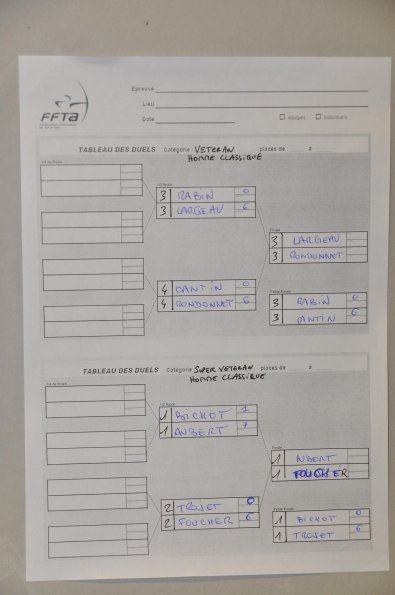 FFTA
Epreuve
Lieu
Date
équipes
individuels
TABLEAU DES DUELS Catégorie : VETERAN places de à
HOMME CLASSIQUE
1/4 de finale
1/2 finale
3 RABIN 0
3 LARGEAU 6
Finale
3 LARGEAU
3 RONDONNET
4 CANTIN 0
4 RONDONNET 6
Petite finale
3 RABIN 0
3 CANTIN 6
TABLEAU DES DUELS Catégorie SUPER VETERAN places de à
HOMME CLASSIQUE
1/4 de finale
1/2 finale
1 BICHOT 1
1 AUBERT 7
Finale
1 AUBERT
1 FOUCHER
2 TROJET 0
2 FOUCHER 6
Petite finale
1 BICHOT 0
1 TROJET 6